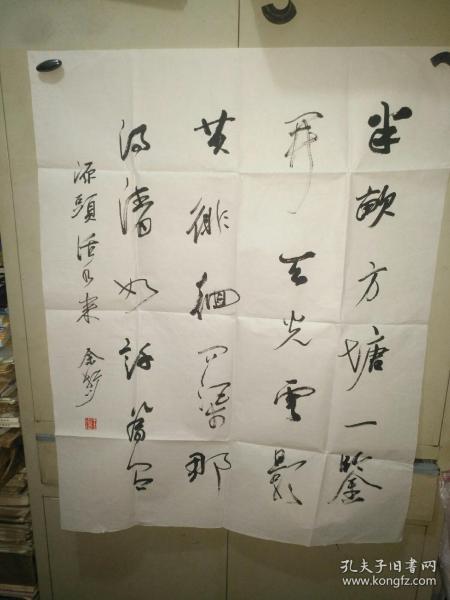 半畝方塘一鑒
開天光雲影
共徘徊問渠那
得清如許為有
源頭活水來 余
孔夫子旧书网
www.kongfz.com